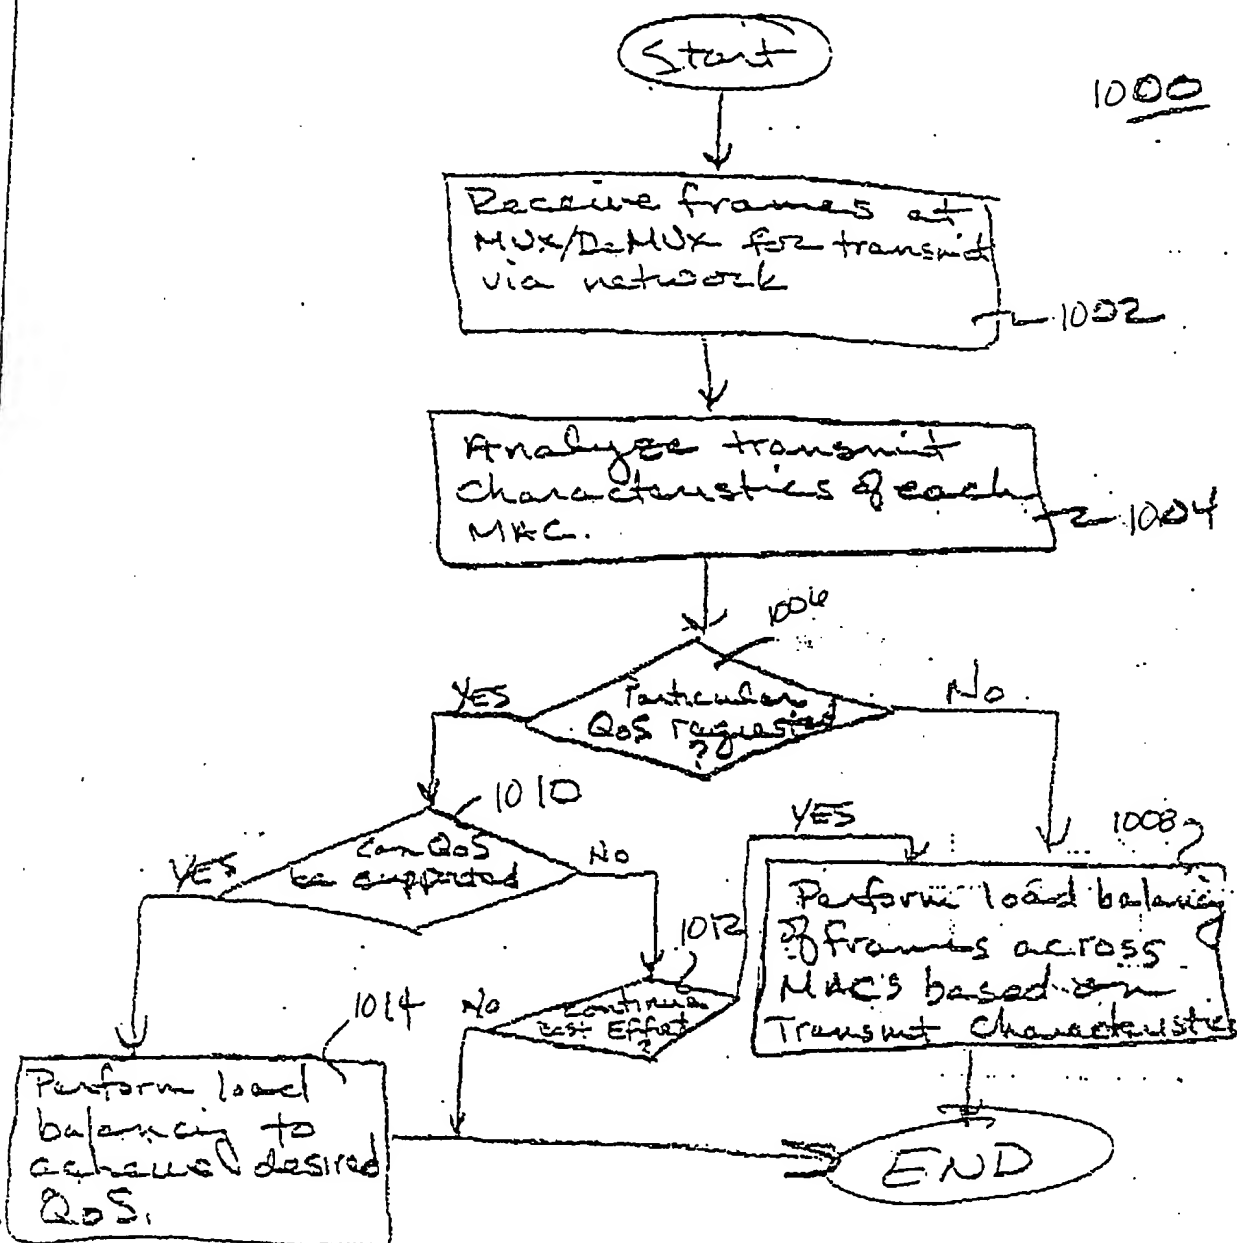 Start
1000
Receive frames at
MUX/DeMUX for transmit
via network
1002
Analyze transmit
characteristics of each
MAC.
1004
1006
Particular
QoS requested
?
YES
No
1010
Can QoS
be supported
YES
No
1012
Continue
Best Effort
?
YES
No
1008
Perform load balancing
of frames across
MAC's based on
Transmit Characteristics
1014
Perform load
balancing to
acheive desired
QoS.
END